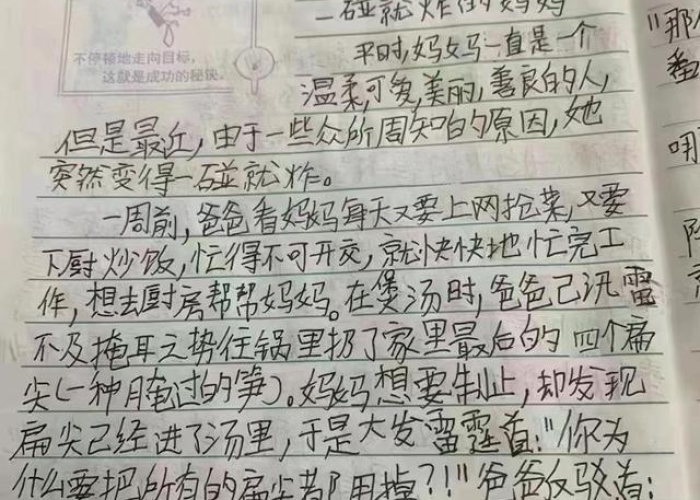 一碰就炸的妈妈
不停顿地走向目标,
这就是成功的秘诀。
平时,妈妈一直是一个
温柔,可爱,美丽,善良的人,
但是最近,由于一些众所周知的原因,她
突然变得一碰就炸。
一周前,爸爸看妈妈每天又要上网抢菜,又要
下厨炒饭,忙得不可开交,就快快地忙完工
作,想去厨房帮帮妈妈。在煲汤时,爸爸已汛雷
不及掩耳之势往锅里扔了家里最后的四个扁
尖(一种腌过的笋)。妈妈想要制止,却发现
扁尖已经进了汤里,于是大发雷霆道:"你为
什么要把所有的扁尖都用掉?!"爸爸反驳道:
"那